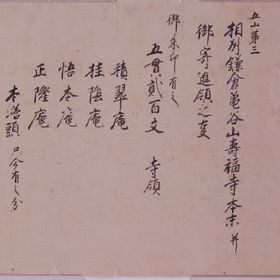 五山第三
相州鎌倉亀谷山寿福寺本末并
御寄進領之事
御朱印有之
五貫弐百文 寺領
積翠庵
桂陰庵
悟本庵
正隆庵
本塔頭 只今有之分